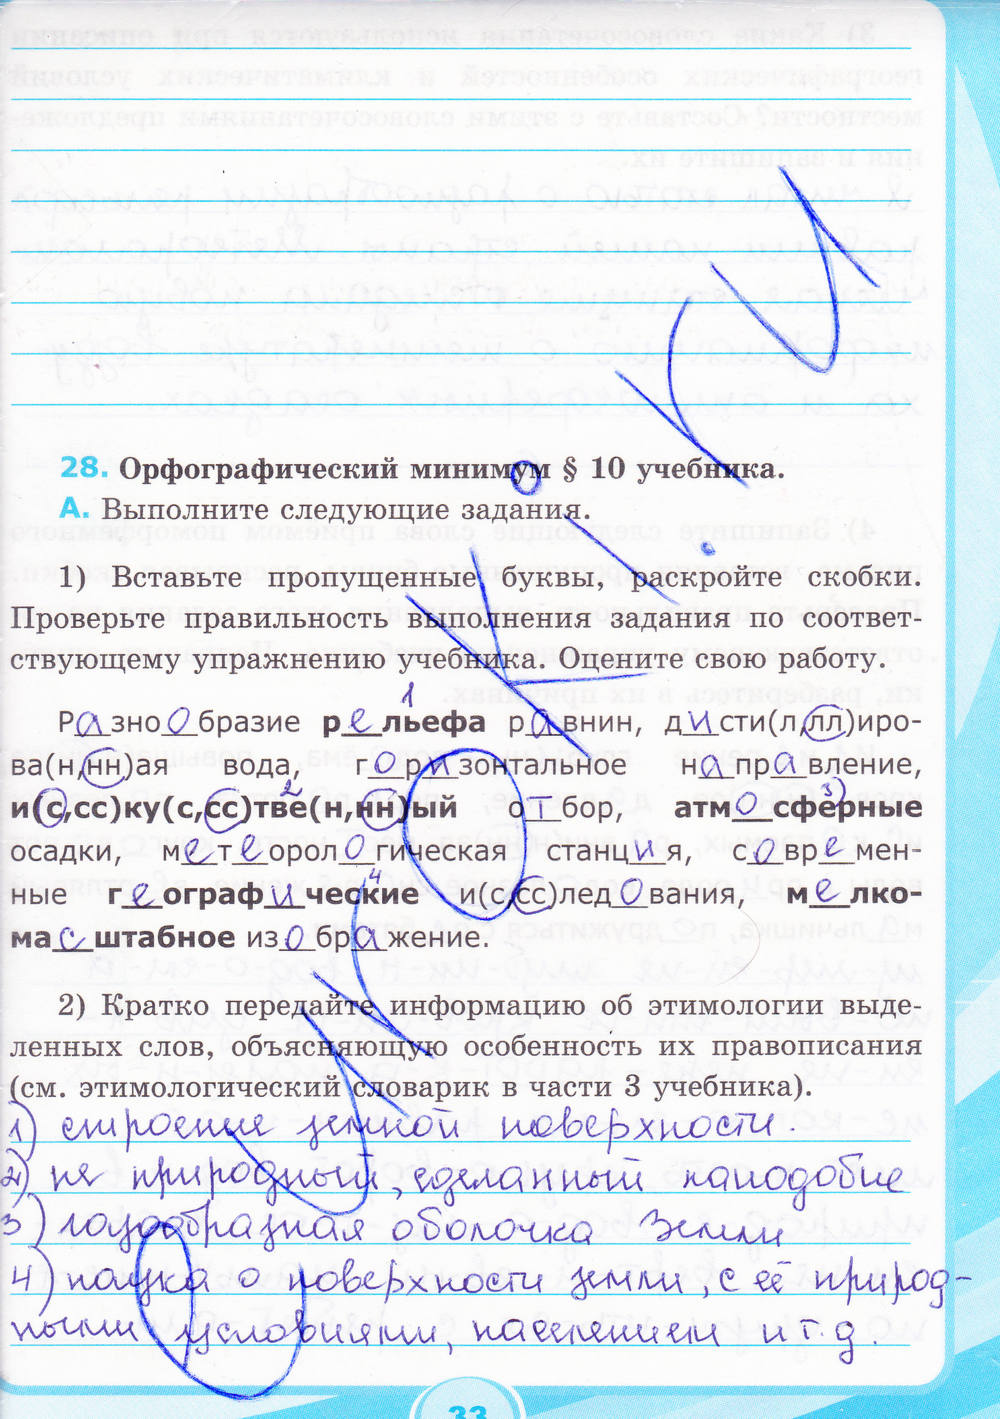 28. Орфографический минимум § 10 учебника.
А. Выполните следующие задания.
1) Вставьте пропущенные буквы, раскройте скобки.
Проверьте правильность выполнения задания по соответ-
ствующему упражнению учебника. Оцените свою работу.
1
Разнообразие рельефа равнин, дисти(л,лл)иро-
ва(н,нн)ая вода, горизонтальное направление,
2 3
и(с,сс)ку(с,сс)тве(н,нн)ый отбор, атмосферные
осадки, метеорологическая станция, современ-
4
ные географические и(с,сс)ледования, мелко-
масштабное изображение.
2) Кратко передайте информацию об этимологии выде-
ленных слов, объясняющую особенность их правописания
(см. этимологический словарик в части 3 учебника).
1) строение земной поверхности.
2) не природный, сделанный наподобие
3) газообразная оболочка Земли
4) наука о поверхности земли, с её природ-
ными условиями, населением и т.д.
33